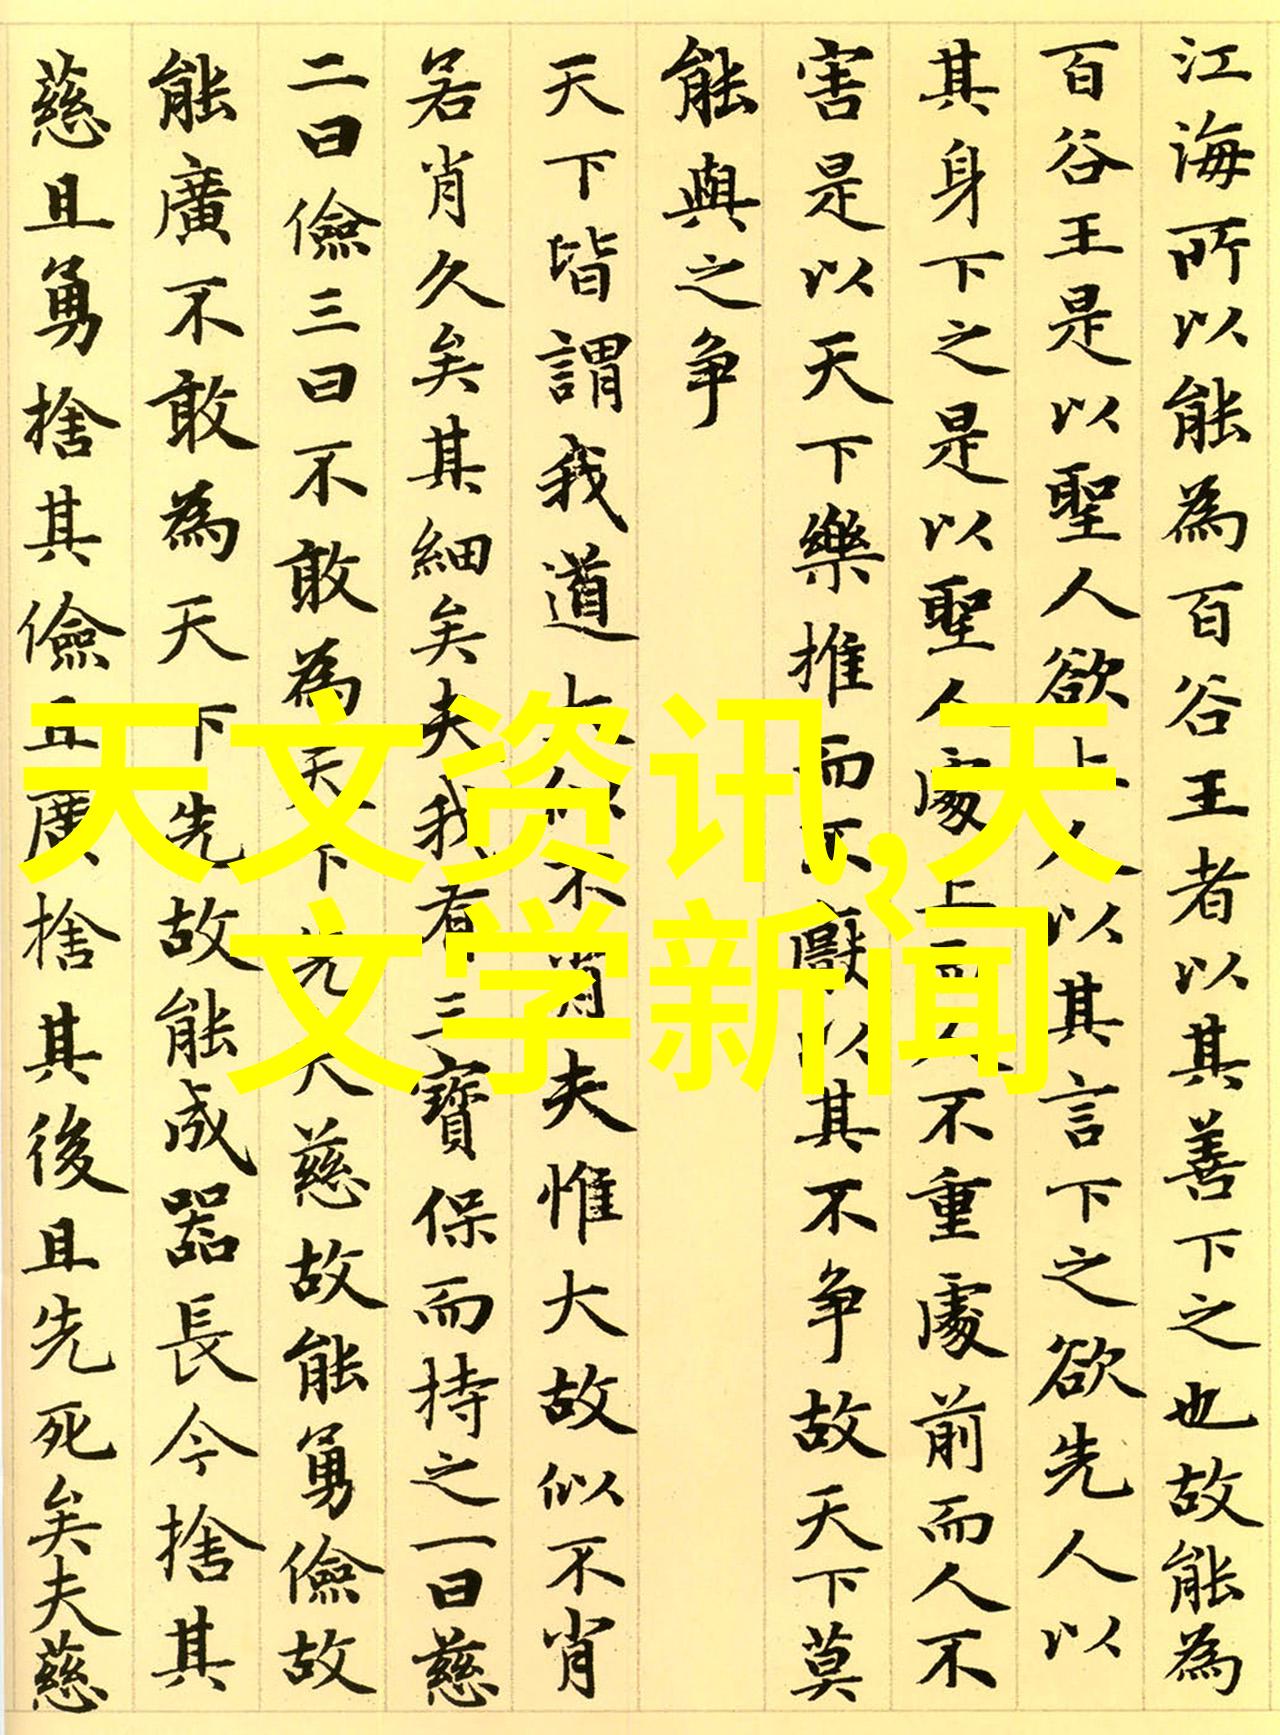 江海所以能為百谷王者以其善下之也故能為
百谷王是以聖人欲上人以其言下之欲先人以
其身下之是以聖人處上而人不重處前而人不
害是以天下樂推而不厭以其不争故天下莫
能與之争
天下皆謂我道大似不肖夫惟大故似不肖
若肖久矣其細矣夫我有三寶保而持之一曰慈
二曰儉三曰不敢為天下先夫慈故能勇儉故
能廣不敢為天下先故能成器長今捨其
慈且勇捨其儉且廣捨其後且先死矣夫慈
天文资讯,天
文学新闻